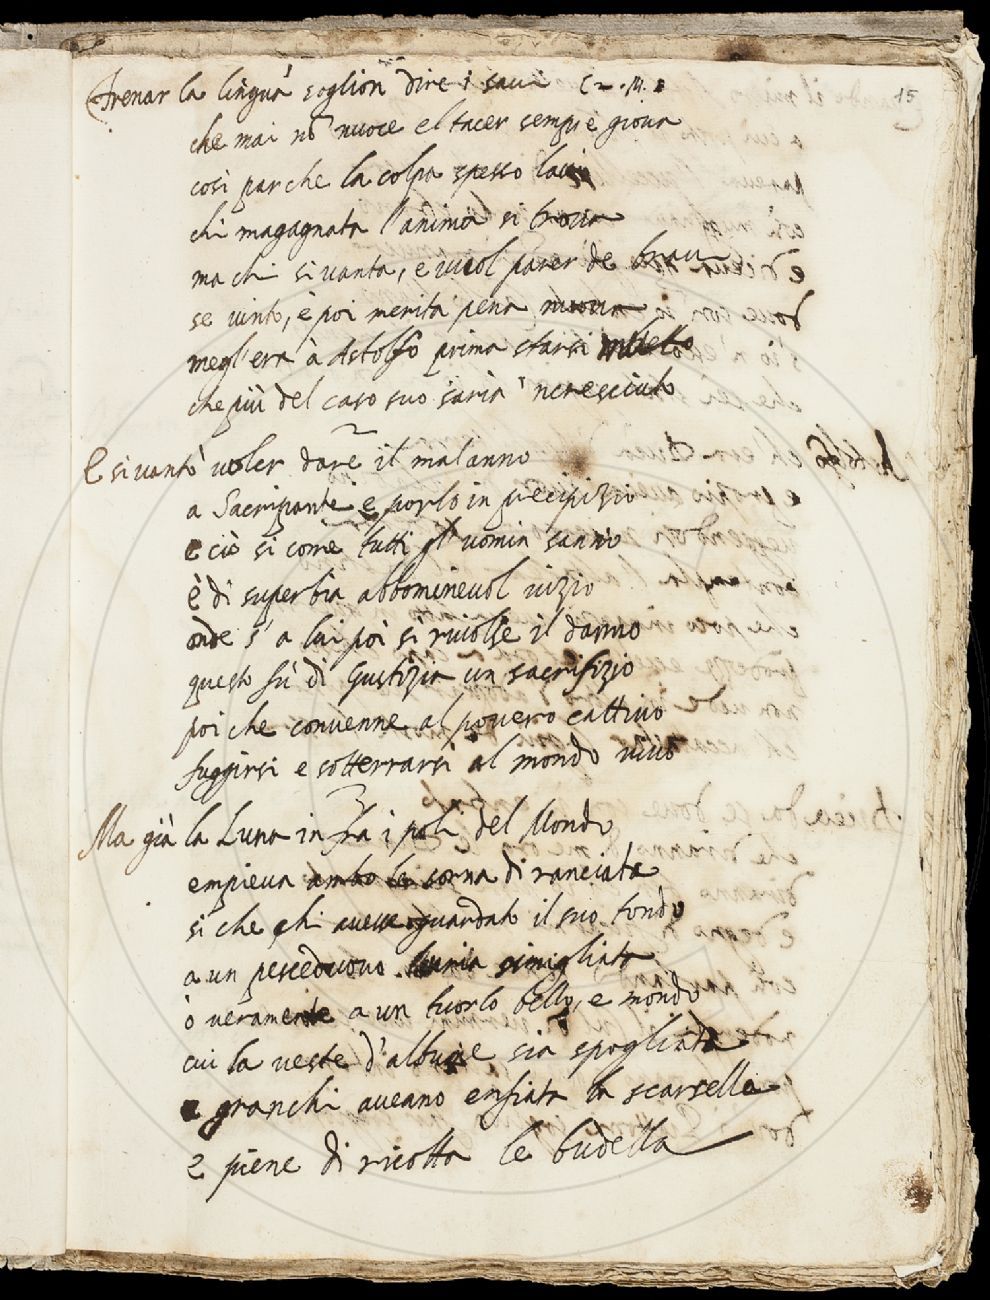 15
Frenar la lingua soglion dire i savi C. 2. M. 2
che mai nō nuoce el tacer sempre giova
così par che la colpa spesso lavi
chi magagnata l'anima si trova
ma chi si vanta, e vuol parer de bravi
se vinto, è poi merita pena nuova
megl'era à Astolfo prima starsi muto
che più del caso suo saria 'ncresciuto
E si vantò voler dare il malanno
a Sacripante e porlo in precipizio
e ciò si come tutti gl'uomin sanno
è di superbia abbominevol vizio
onde s'a lui poi si rivolse il danno
questo fù di Giustizia un sacrifizio
poi che convenne al povero cattivo
fuggirsi e sotterrarsi al mondo vivo
Ma già la Luna in fra i poli del Mondo
empieva ambo le corna di ranciata
si che chi avesse guardato il suo tondo
a un pesceduovo l'avria simigliata
ò veramente a un tuorlo bello, e mondo
cui la veste d'albume sia spogliata
e granchi aveano enfiata la scarsella
e piene di ricotta le budella